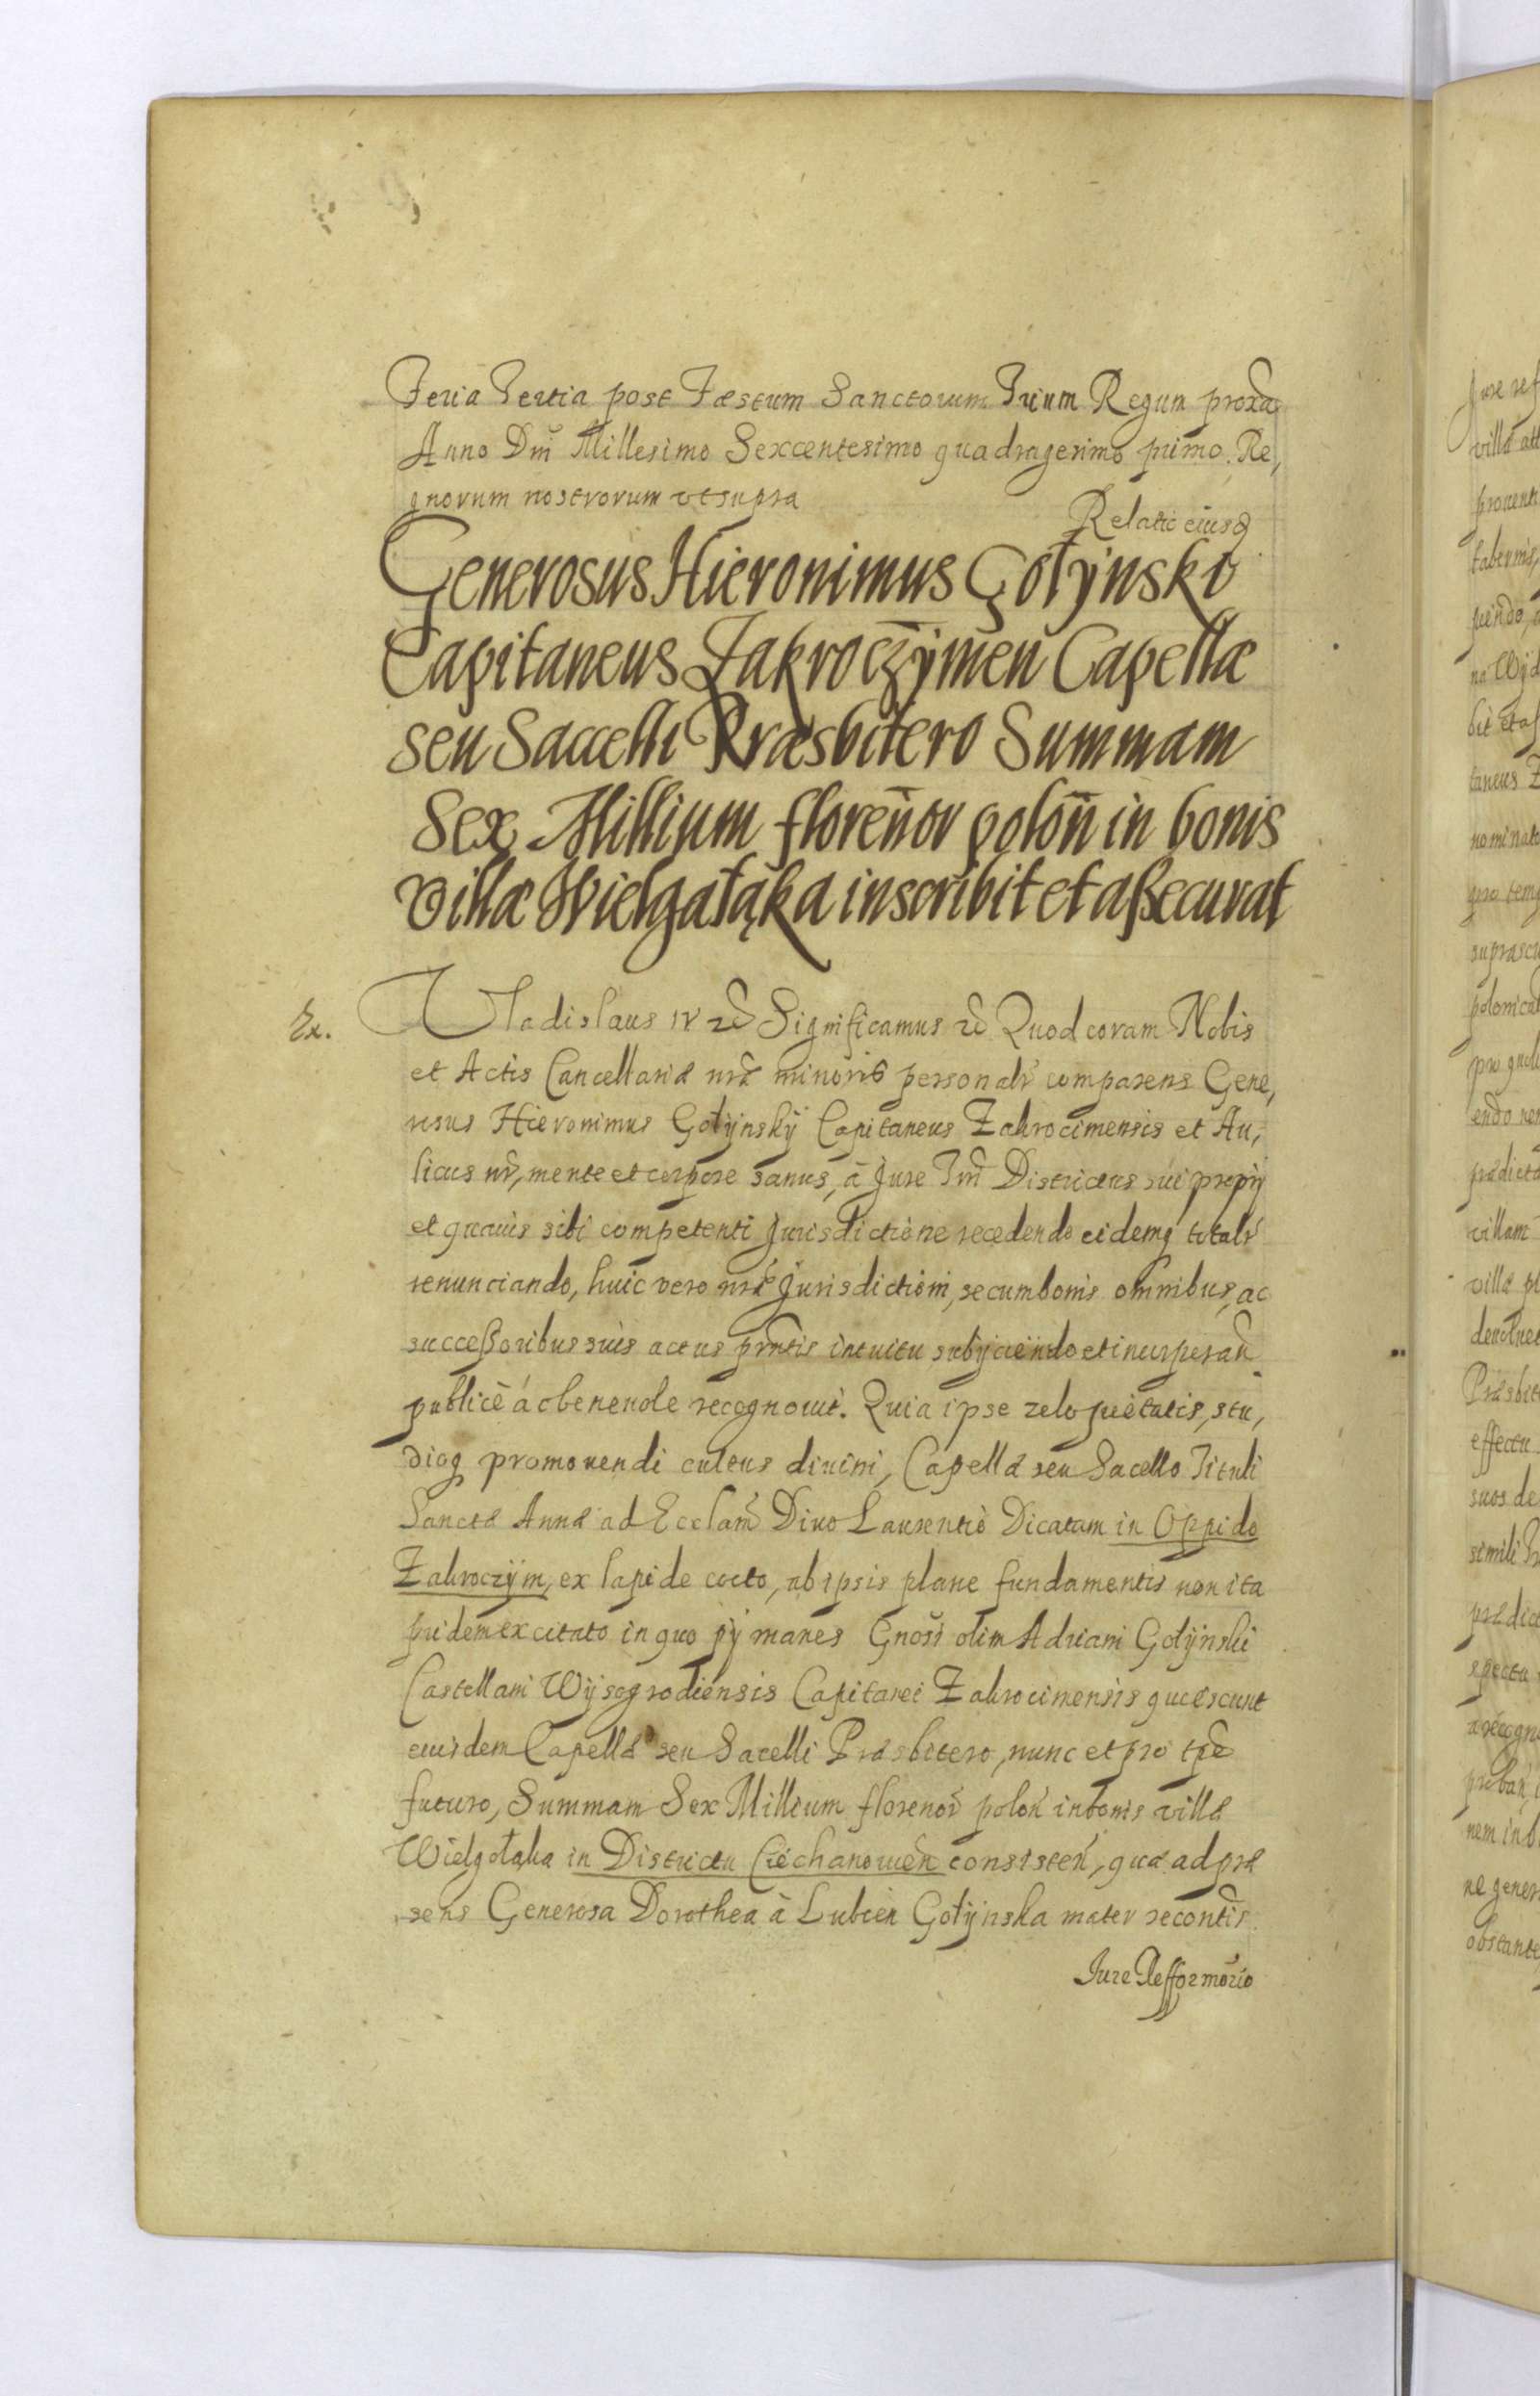 Feria Tertia post Fæstum Sanctorum Trium Regum proxa
Anno Dni Millesimo Sexcentesimo quadragesimo primo. Re,
gnorum nostrorum ut supra
Relatio eiusd
Generosus Hieronimus Gotÿnski
Capitaneus Zakroczÿmen Capellæ
seu Saccelli Præsbitero Summam
Sex Millium florenor polon in bonis
villæ Wielgałąka inscribit et aßecurat
Ex. Vladislaus IV etc Significamus etc Quod coram Nobis
et Actis Cancellariæ nræ minoris personalr comparens Gene,
rosus Hieronimus Gotÿnskÿ Capitaneus Zakrocimensis et Au,
licus nr, mente et corpore sanus, à Jure Trri Districtus sui proprÿ
et quauis sibi competenti Jurisdictione recedendo eidemq totalr
renunciando, huic vero nræ Jurisdictioni, se cum bonis omnibus, ac
succeßoribus suis actus prntis intuitu subÿciendo et incorporan
publicè ac beneuole recognouit. Quia ipse zelo pietatis, stu,
dioq promouendi cultus diuini, Capellæ seu Sacello Tituli
Sanctæ Annæ ad Ecclam Diuo Laurentio Dicatam in Oppido
Zakroczÿm, ex lapide cocto, ab ipsis plane fundamentis non ita
pridem excitato in quo pÿ manes Gnosi olim Adriani Gotÿnski
Castellani Wÿsogrodiensis Capitanei Zakrocimensis quiescunt
eiusdem Capellæ seu Sacelli Præsbitero, nunc et pro tpe
futuro, Summam Sex Millium florenor polon in bonis villæ
Wielgołąka in Districtu Ciechanouien consisten, quæ ad præ
sens Generosa Dorothea à Lubien Gotÿnska mater recontis
Jure Refformorio